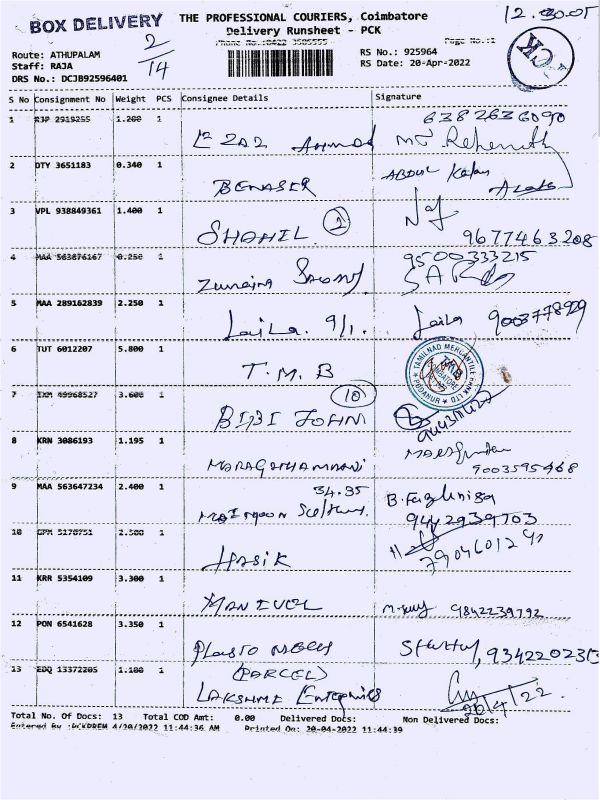 BOX DELIVERY
2/14
THE PROFESSIONAL COURIERS, Coimbatore
Delivery Runsheet - PCK
12.30.05
PCK
Route: ATHUPALAM
Staff: RAJA
DRS No.: DCJB92596401
RS No.: 925964
RS Date: 20-Apr-2022
S No Consignment No Weight PCS Consignee Details Signature
1 RJP 2919255 1.200 1 Ahmed 6382636090
2 DTY 3651183 0.340 1 BENASER ABDUL Kalam
3 VPL 938849361 1.400 1 SHAHIL 1 9677463208
4 MAA 563876167 0.250 1 9500333215
5 MAA 289162839 2.250 1 Laila. 9/1. Laila 9003778929
6 TUT 6012207 5.800 1 T.M.B
TAMILNAD MERCANTILE BANK LTD
PODANUR
7 IXM 49968527 3.600 1 BIBI JOHN 10
8 KRN 3086193 1.195 1 9003595468
9 MAA 563647234 2.400 1 34.35 B.Fazlunisa 9442939703
10 2.500 1 HASIK
11 KRR 5354109 3.300 1 MANIVEL 9842239792
12 PON 6541628 3.350 1
13 EDQ 13372205 1.100 1 (PARCEL) LAKSHMI Enterprises 20/4/22.
Total No. Of Docs: 13 Total COD Amt: 0.00 Delivered Docs: Non Delivered Docs:
Entered By :PCKPREM 4/20/2022 11:44:36 AM Printed On: 20-04-2022 11:44:39